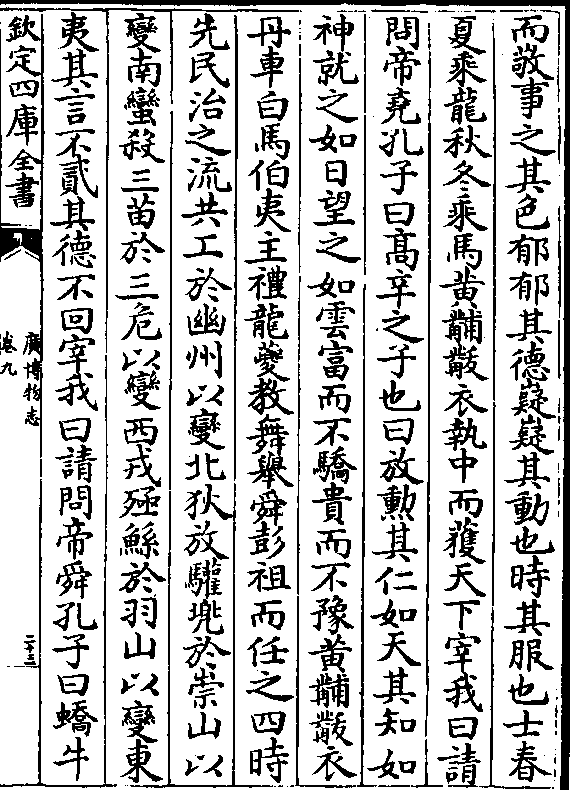 而敬事之其色郁郁其德嶷嶷其動也時其服也士春
夏乘龍秋冬乘馬黄黼黻衣執中而獲天下宰我曰請
問帝堯孔子曰髙辛之子也曰放勲其仁如天其知如
神就之如日望之如雲富而不驕貴而不豫黄黼黻衣
丹車白馬伯夷主禮龍夔教舞舉舜彭祖而任之四時
先民治之流共工於幽州以變北狄放驩兠於崇山以
變南蠻殺三苗於三危以變西戎殛鯀於羽山以變東
夷其言不貳其德不回宰我曰請問帝舜孔子曰蟜牛
欽定四庫全書
廣博物志
卷九
二十三